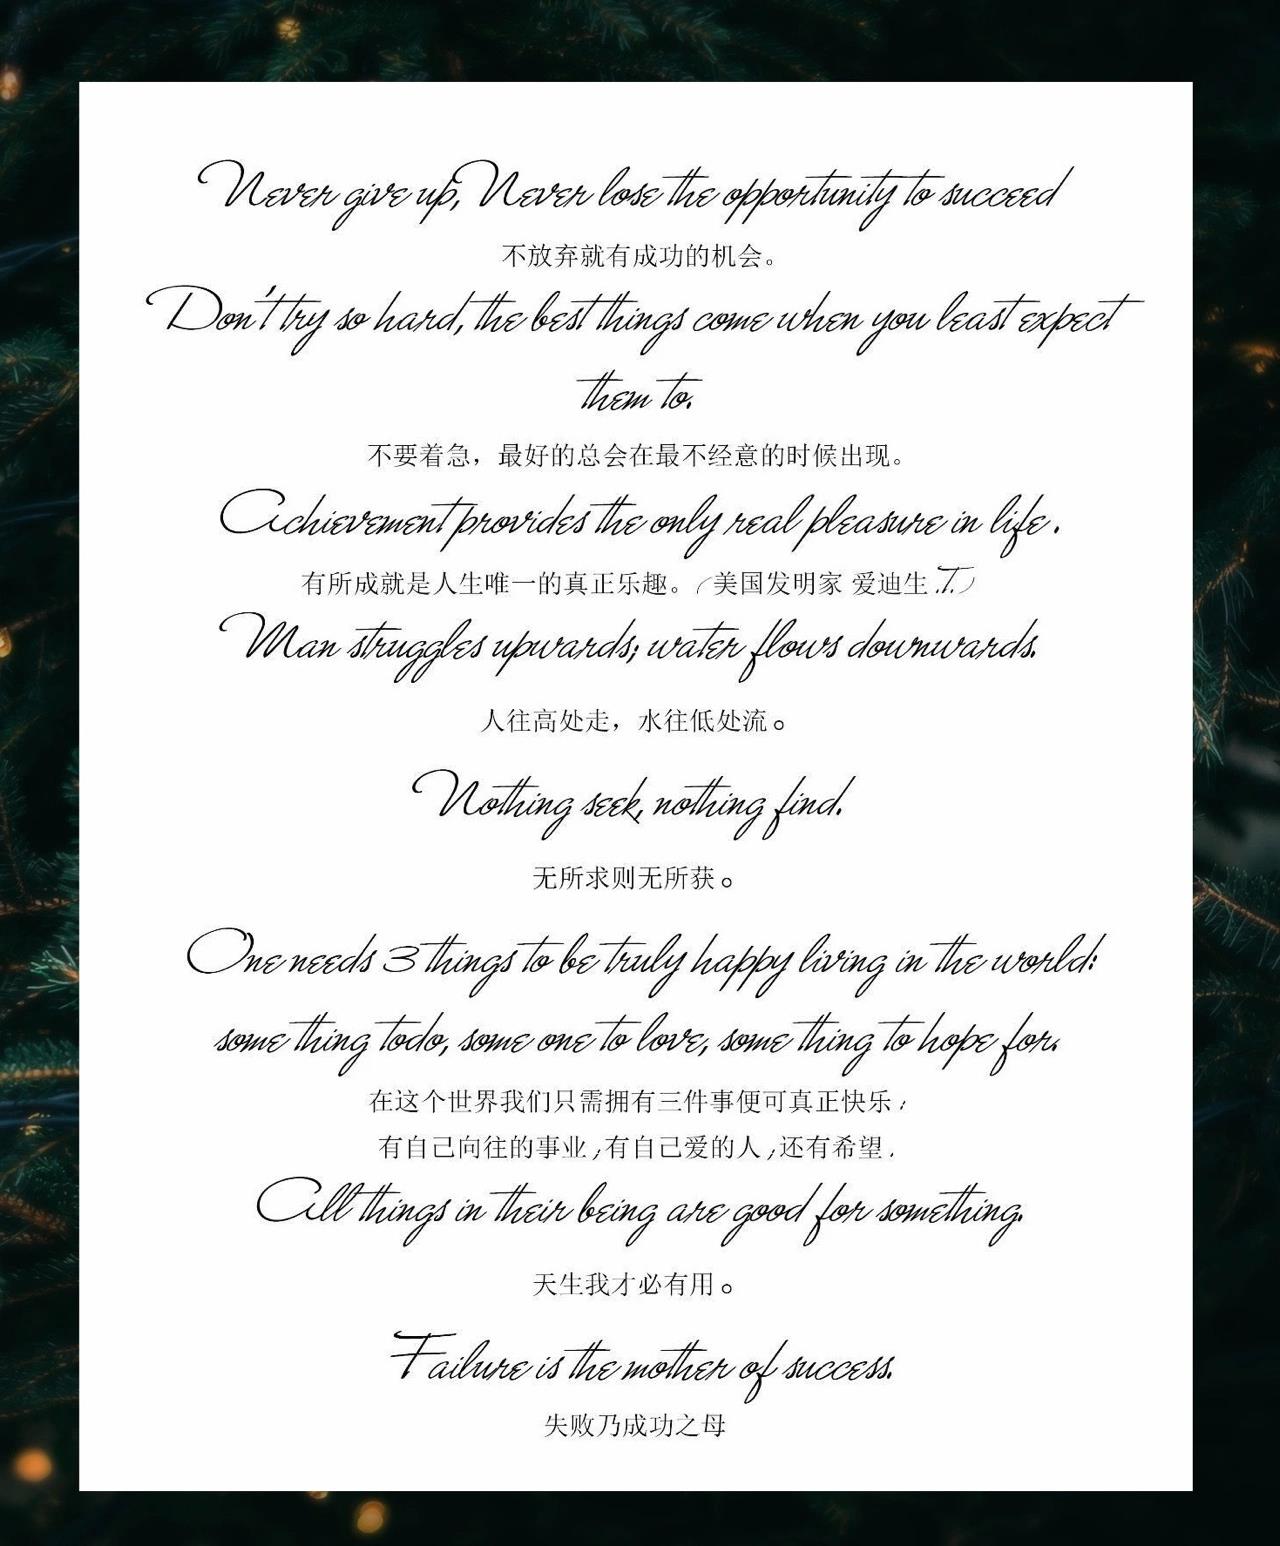 Never give up, Never lose the opportunity to succeed
不放弃就有成功的机会。
Don't try so hard, the best things come when you least expect
them to.
不要着急，最好的总会在最不经意的时候出现。
Achievement provides the only real pleasure in life .
有所成就是人生唯一的真正乐趣。(美国发明家 爱迪生.T.)
Man struggles upwards; water flows downwards.
人往高处走，水往低处流。
Nothing seek, nothing find.
无所求则无所获。
One needs 3 things to be truly happy living in the world:
some thing todo, some one to love, some thing to hope for.
在这个世界我们只需拥有三件事便可真正快乐;
有自己向往的事业,有自己爱的人,还有希望.
All things in their being are good for something.
天生我才必有用。
Failure is the mother of success.
失败乃成功之母